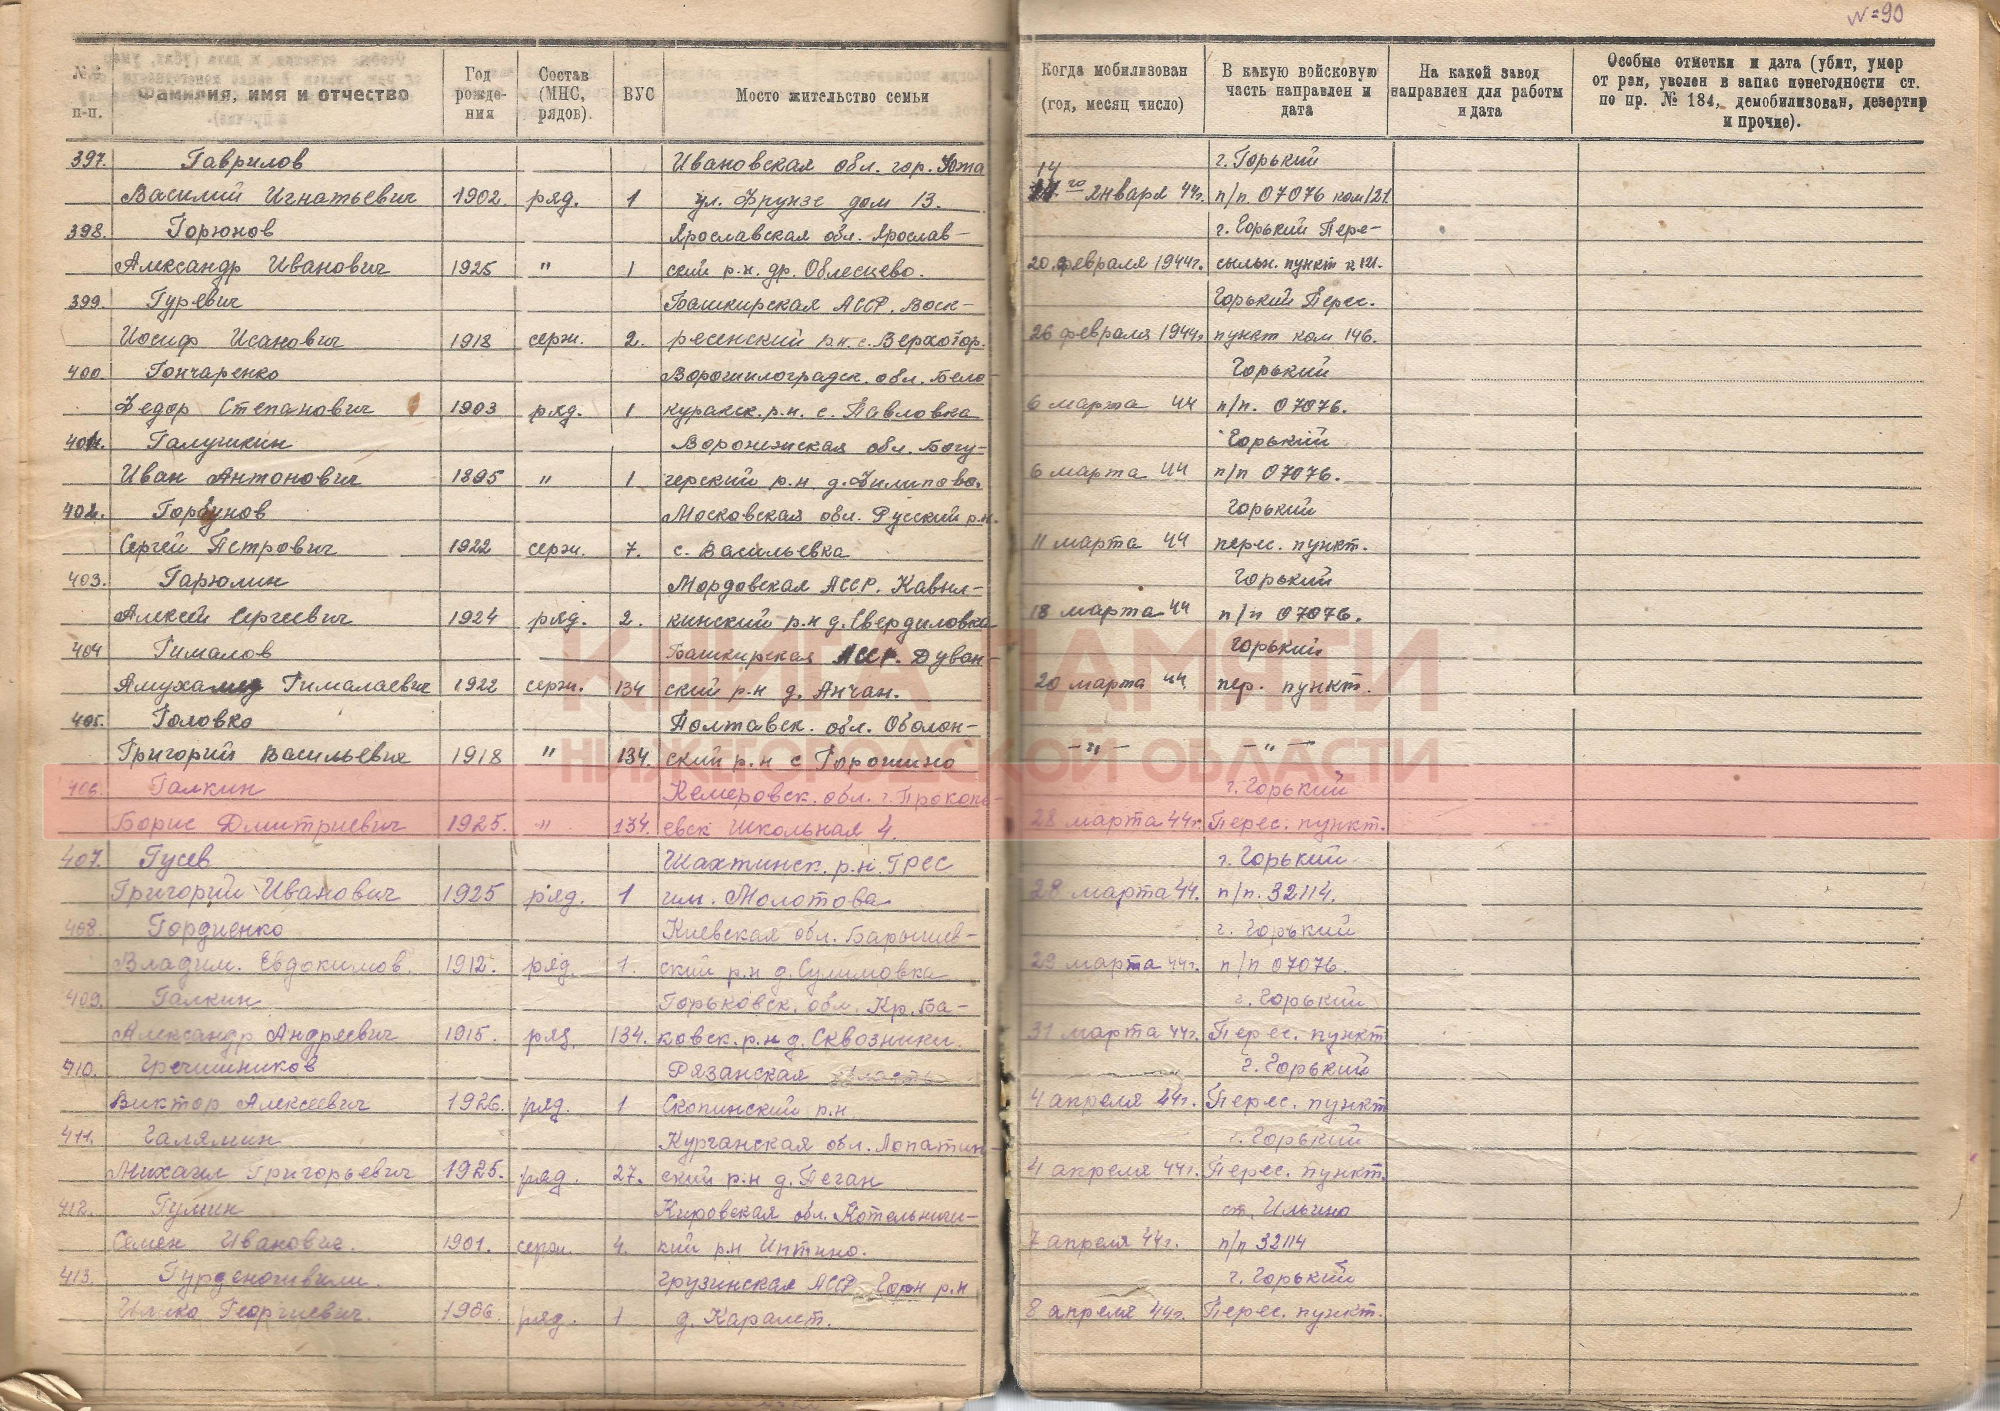 № 90
№№ п-п.
Фамилия, имя и отчество
Год рожде- ния
Состав (МНС, рядов).
ВУС
Мосто жительство семьи
Когда мобилизован (год, месяц число)
В какую войсковую часть направлен и дата
На какой завод направлен для работы и дата
Особые отметки и дата (убит, умор от ран, уволен в запас понегодности ст. по пр. № 184, демобилизован, дезертир и прочие).
397. Гаврилов Ивановская обл. гор. Южа г. Горький
Василий Игнатьевич 1902. ряд. 1 ул. Фрунзе дом 13. 14 го января 44г. п/п. 07076 ком 121.
398. Горюнов Ярославская обл. Ярослав- г. Горький Пере-
Александр Иванович 1925 " 1 ский р.н. др. 20 февраля 1944г. сыльн. пункт
399. Гуревич Башкирская АССР. Воск- Горький Перес.
Иосиф Исакович 1918 серж. 2. ресенский р.н. с. Верхотор. 26 февраля 1944г. пункт ком 146.
400. Гончаренко Ворошилоградск. обл. Бело- Горький
Федор Степанович 1903 ряд. 1 куракск. р.н. с. Павловка 6 марта 44 п/п. 07076.
401. Галушкин Воронежская обл. Богу- Горький
Иван Антонович 1895 " 1 черский р.н. д. Филипово. 6 марта 44 п/п 07076.
402. Горбунов Московская обл. Русский р.н. Горький
Сергей Петрович 1922 серж. 7. с. Васильевка 11 марта 44 перес. пункт.
403. Гарюлин Мордовская АССР. Кавыл- Горький
Алексей Сергеевич 1924 ряд. 2. кинский р.н д. Свердиловка 18 марта 44 п/п 07076.
404 Гималов Башкирская АССР. Дуван- Горький
Амухамед Гималаевич 1922 серж. 134 ский р.н д. Анчан. 20 марта 44 пер. пункт.
405. Головко Полтавск. обл. Оболон-
Григорий Васильевич 1918 " 134. ский р.н с Горошино - " - - " -
406. Галкин Кемеровск. обл. г. Прокопь- г. Горький
Борис Дмитриевич 1925. " 134. евск Школьная 4. 28 марта 44г. Перес. пункт.
407. Гусев Шахтинск. р.н. ГРЕС г. Горький
Григорий Иванович 1925 ряд. 1 им. Молотова 28 марта 44. п/п. 32114.
408. Гордиенко Киевская обл. Барышев- г. Горький
Владим. Евдокимов. 1912. ряд. 1. ский р.н д. Сулимовка 29 марта 44г. п/п 07076.
409. Галкин Горьковск. обл. Кр. Ба- г. Горький
Александр Андреевич 1915. ряд. 134. ковск. р.н д. Сквозники. 31 марта 44г. Перес. пункт
410. Гречишников Рязанская область г. Горький
Виктор Алексеевич 1926. ряд. 1 Скопинский р.н. 4 апреля 44г. Перес. пункт
411. Галямин Курганская обл. Лопатин- г. Горький
Михаил Григорьевич 1925. ряд. 27. ский р.н д. Пеган 4 апреля 44г. Перес. пункт.
412. Гулин Кировская обл. Котельнич- ст. Ильино
Семен Иванович. 1901. серж. 4. кий р.н 7 апреля 44г. п/п 32114
413. Грузинская АССР р.н г. Горький
Георгиевич. 1906. ряд. 1 д. 8 апреля 44г. Перес. пункт.
КНИГА ПАМЯТИ
НИЖЕГОРОДСКОЙ ОБЛАСТИ